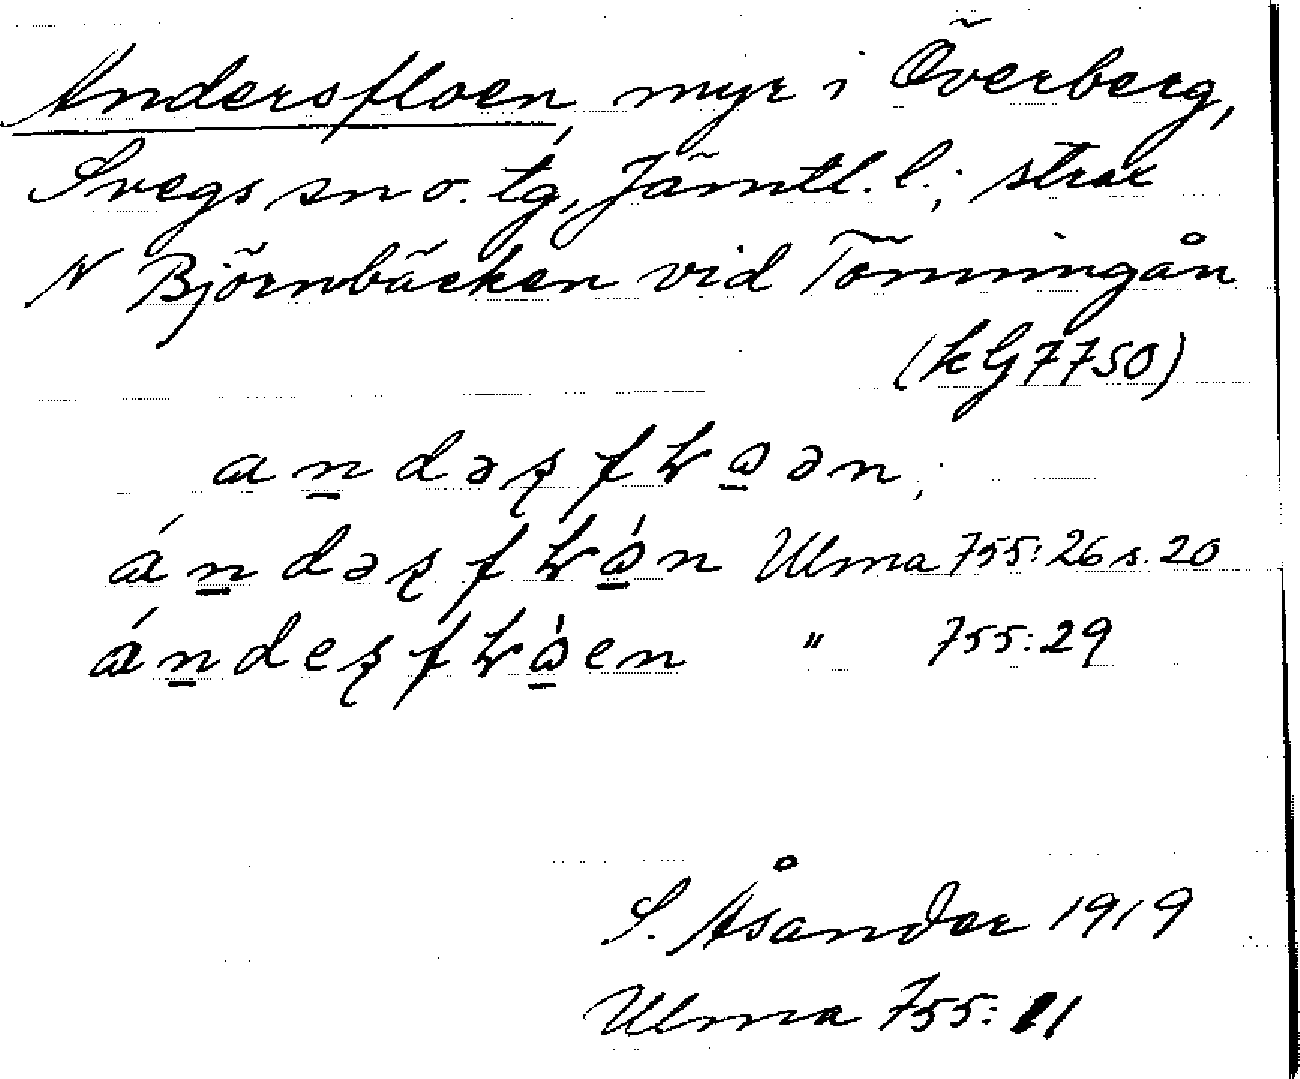 Andersfloen, myr i Överberg,
Svegs sn o. tg, Jämtl. l.; strax
N Björnbäcken vid Tönningån
(kG 7750)
andəʂfɽɷən;
ándəʂfɽɷ́n Ulma 755:26 s. 20
ándeʂfɽɷ́en " 755:29
S. Åsander 1919
Ulma 755:11